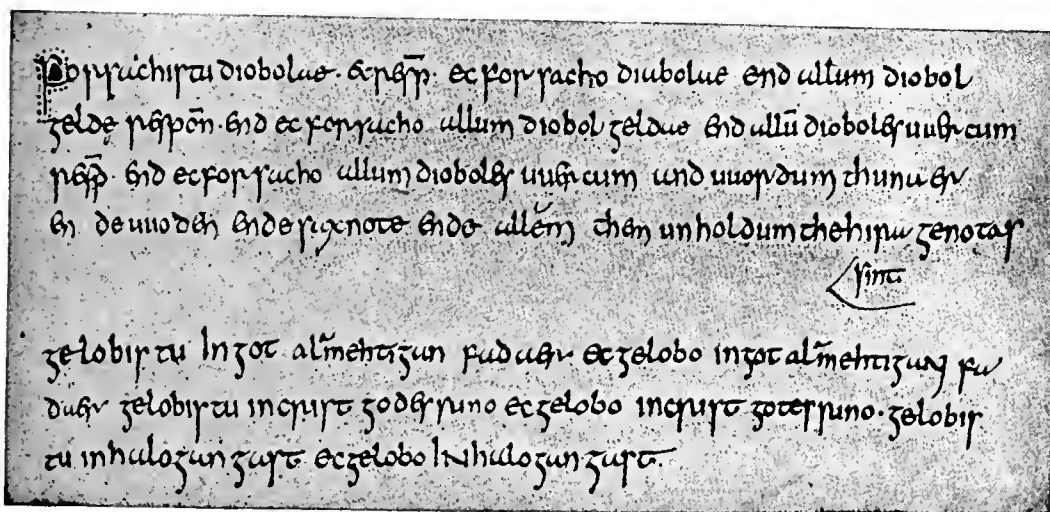 Forsachistu diobolae · & resp̄ · ec forsacho diabolae end allum diobol
gelde respōn · end ec forsacho allum diobol geldae end allū dioboles uuercum
resp̄ · end ec forsacho allum dioboles uuercum and uuordum thunaer
en de uuoden ende saxnote ende allem them unholdum thehira genotas
sint
gelobistu In got alᵃmehtigan fadaer ec gelobo in got alᵃmehtigan fa
daer gelobistu in crist godes suno ec gelobo in crist gotes suno · gelobis
tu in halogan gast ec gelobo IN halogan gast ·